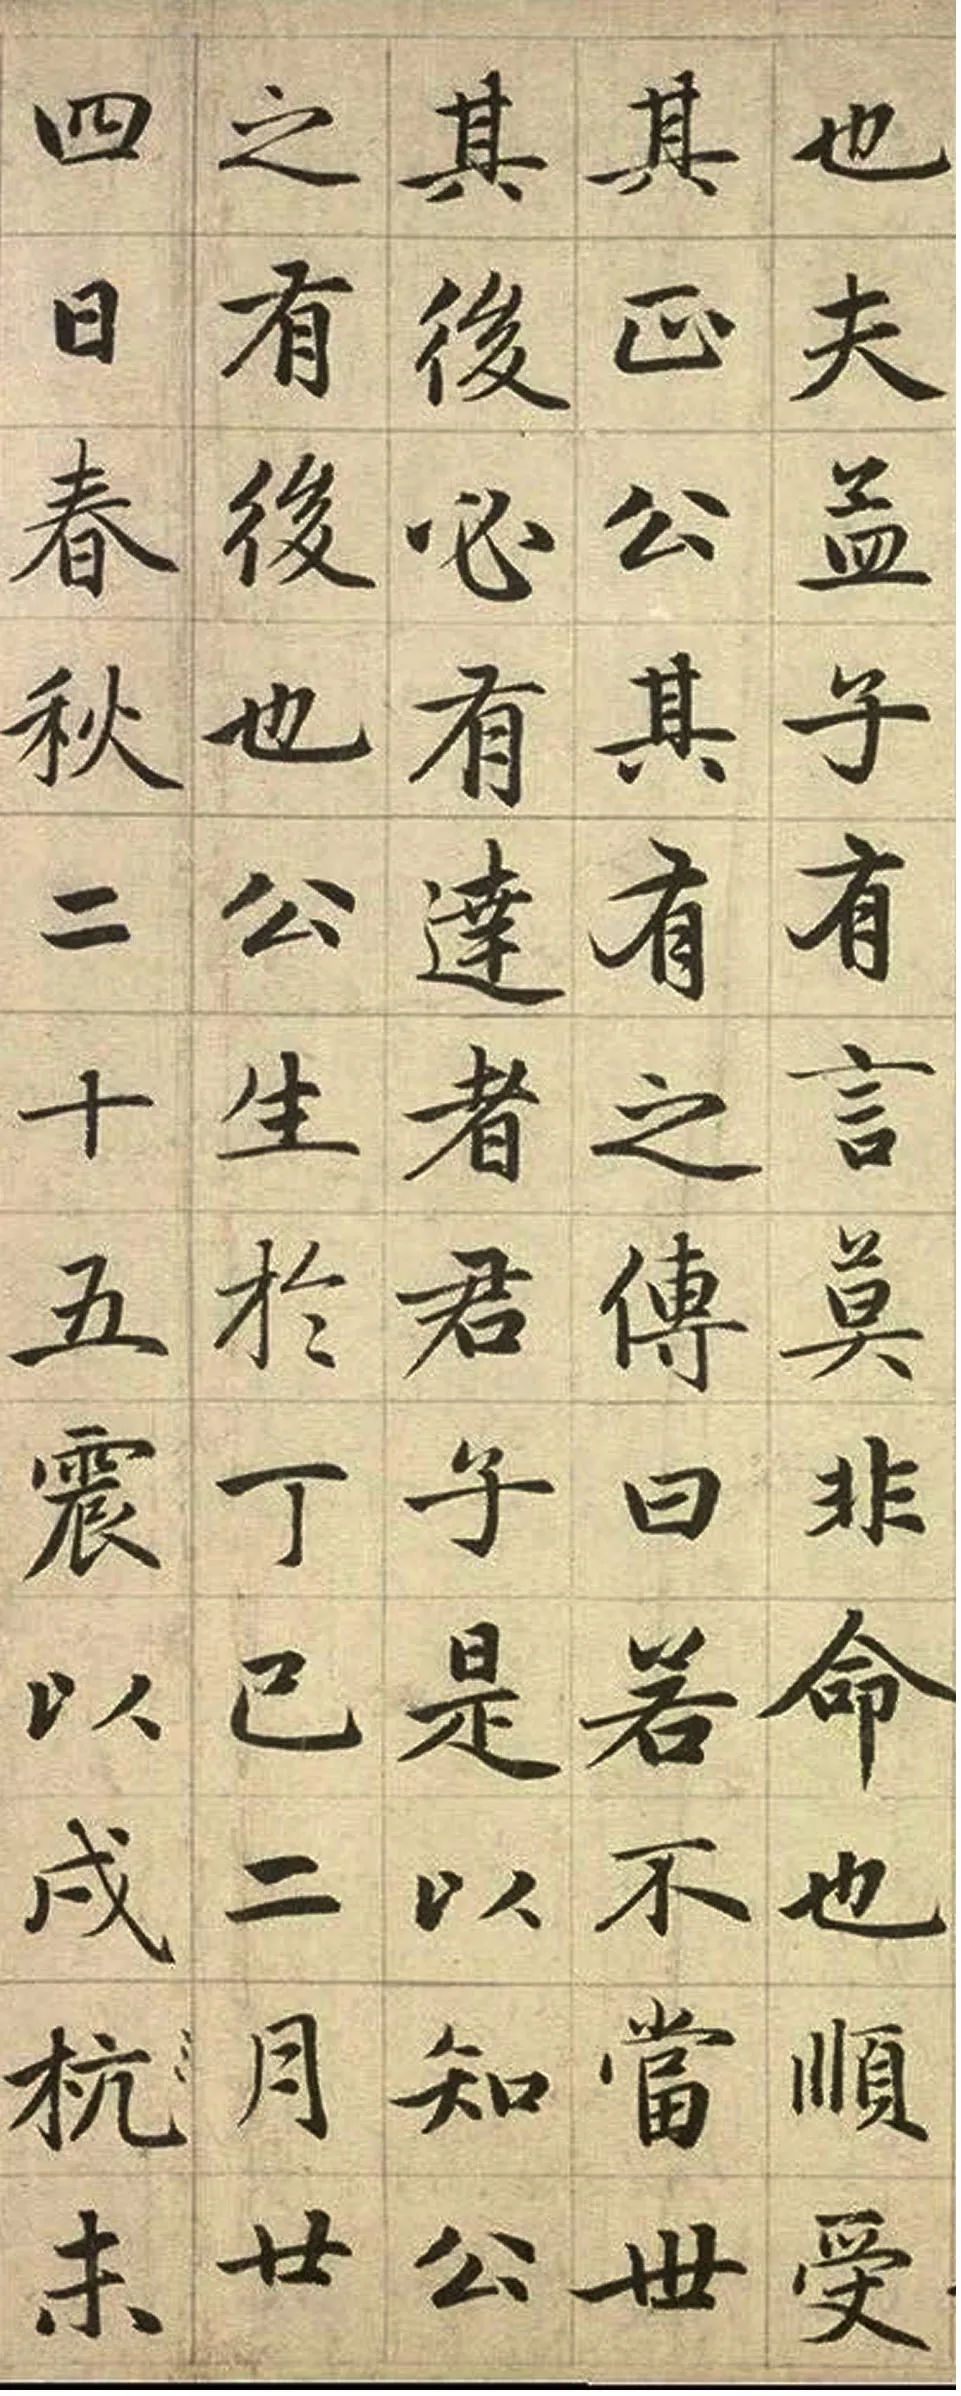 也夫孟子有言莫非命也順受
其正公其有之傳曰若不當世
其後必有達者君子是以知公
之有後也公生於丁巳二月廿
四日春秋二十五震以戍杭未